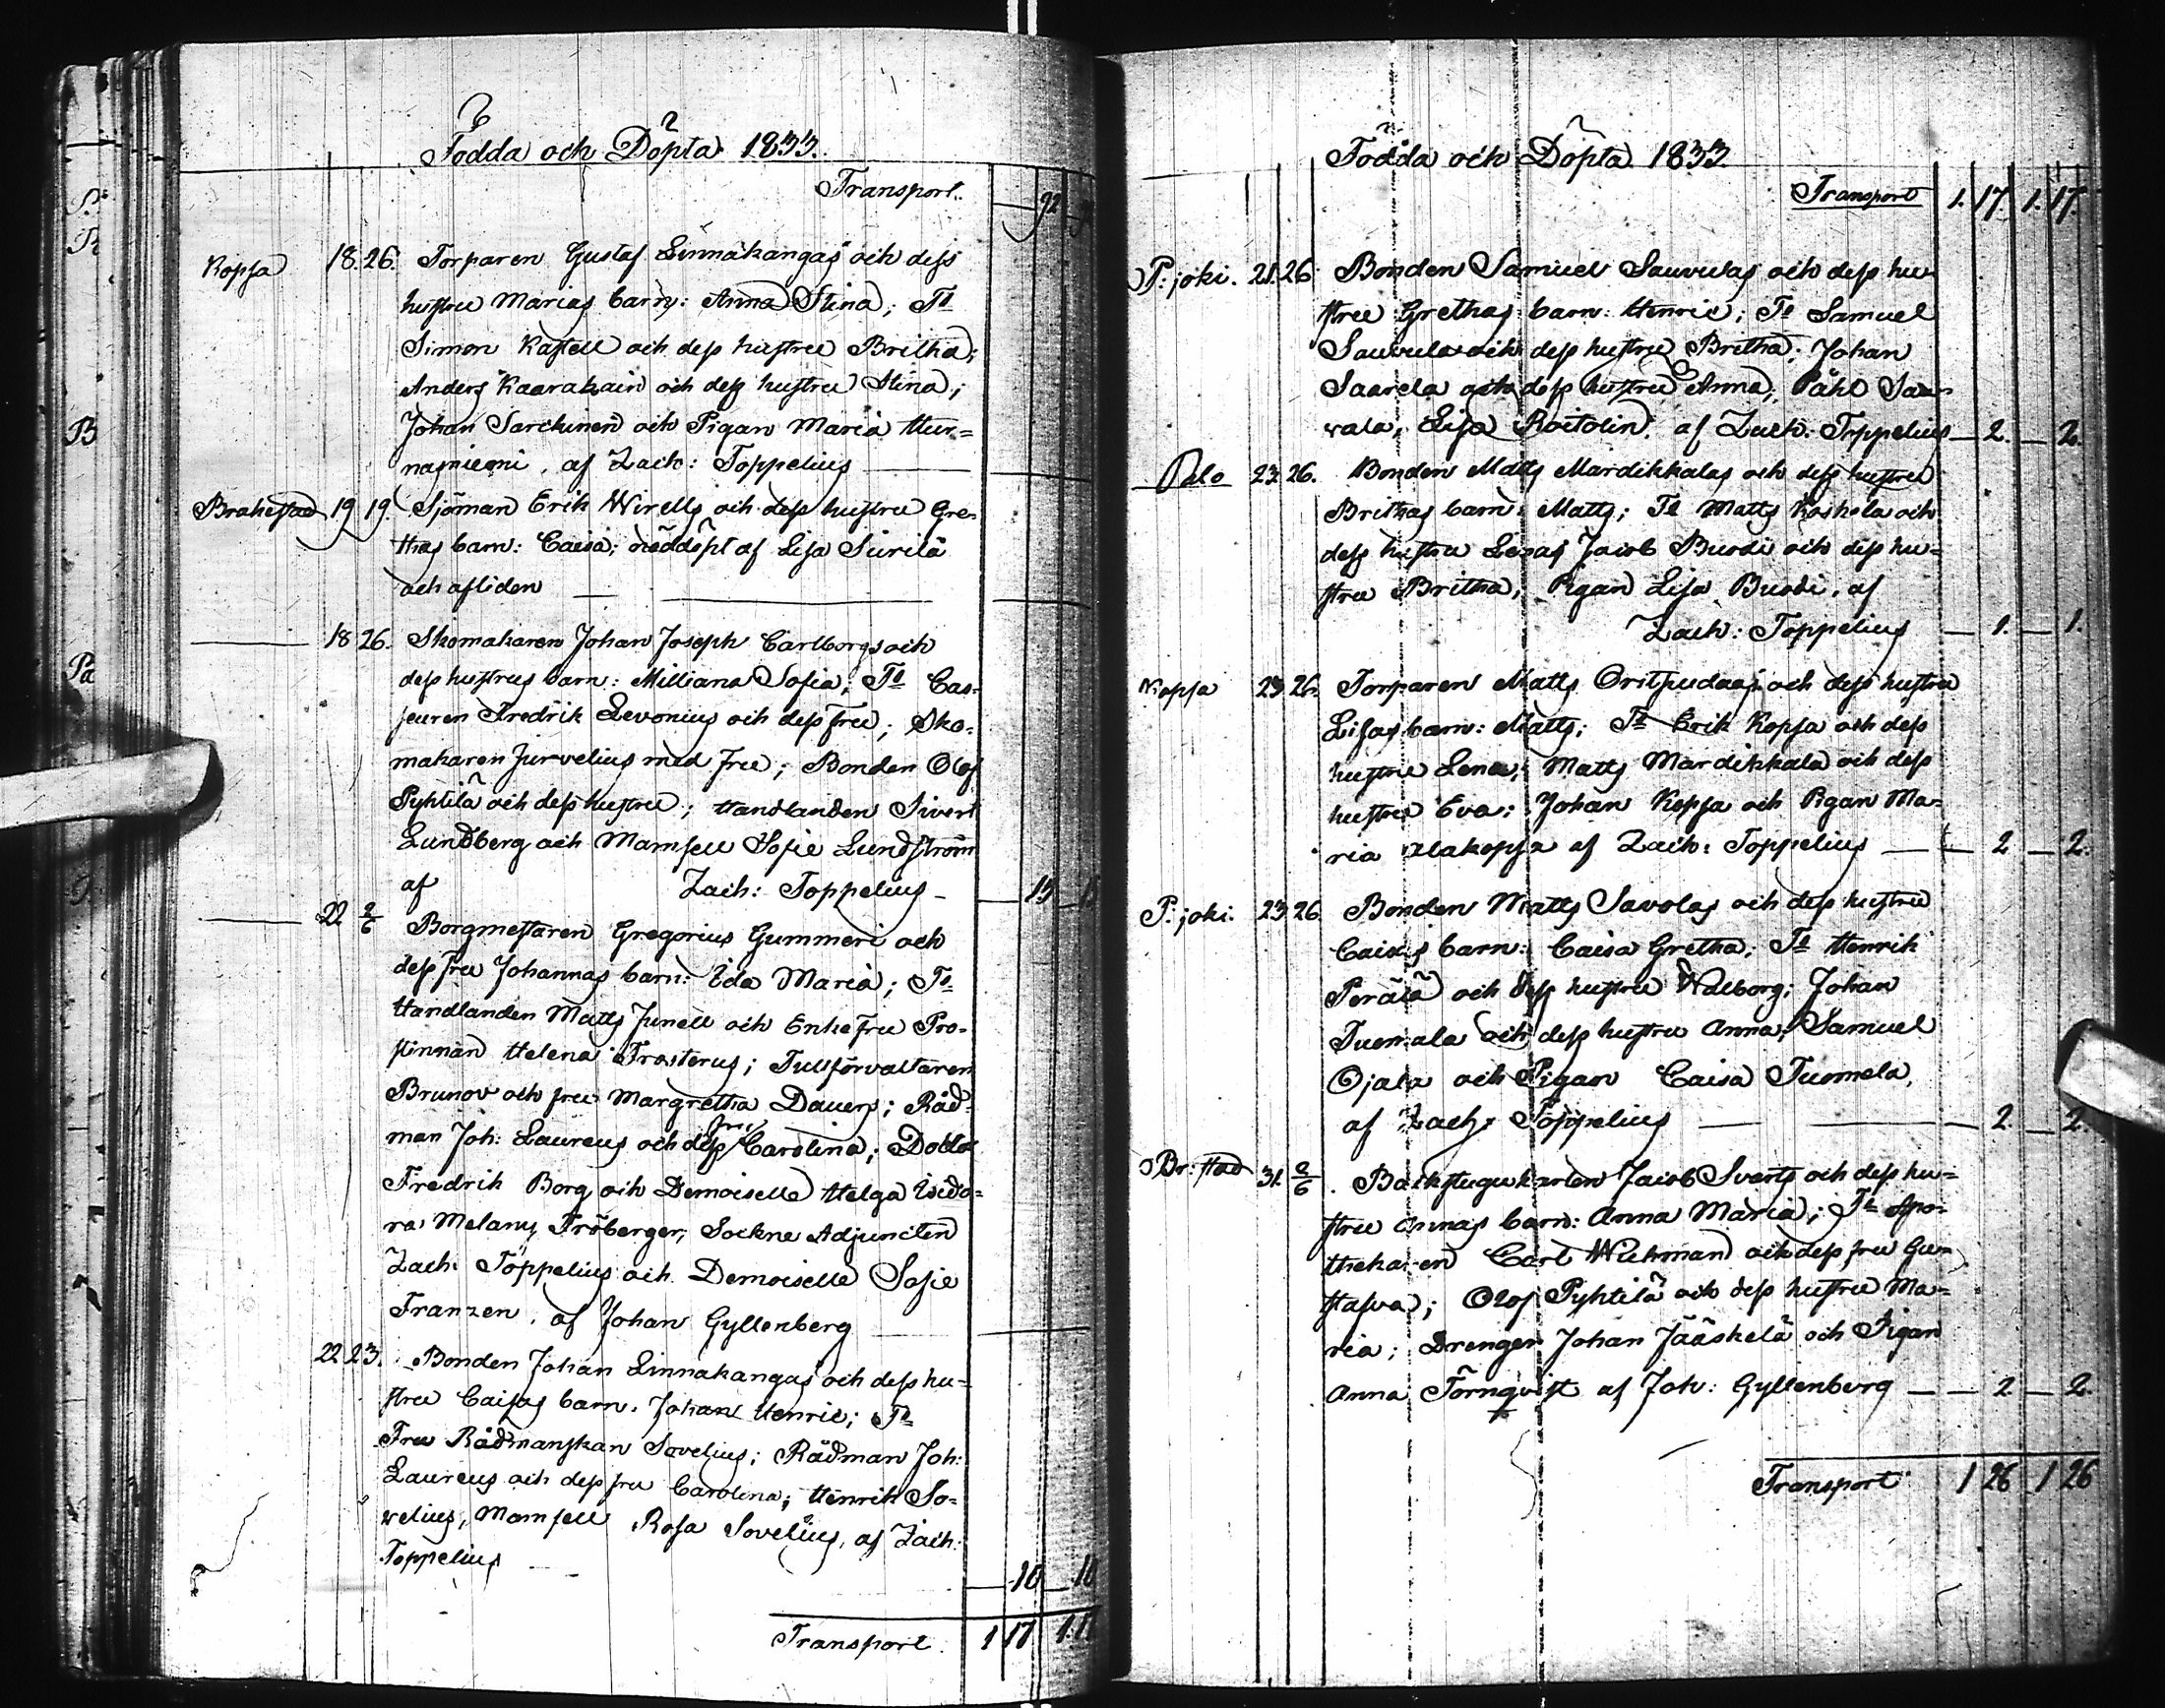 Födda och Döpta 1833.
Transport. 92
Kopsa 18. 26. Torparen Gustaf Linnakangas och dess
hustru Marias barn: Anna Stina; Ts
Simon Kastell och dess hustru Britha;
Anders Kaarakain och dess hustru Stina;
Johan Sarckinen och Pigan Maria Hur=
nasniemi, af Zach: Toppelius
Brahestad 19 19. Sjöman Erik Wirells och dess hustru Gre-
thas barn: Caisa; nöddöpt af Lisa Siirilä
och afliden
18 26. Skomakaren Johan Joseph Carlborgs och
dess hustrus barn: Milliana Sofia; Ts Cas-
seuren Fredrik Levonius och dess fru; Sko-
makaren Jurvelius med fru; Bonden Olof
Pyhtilä och dess hustru; Handlanden Sivert
Lundberg och Mamsell Sofie Lundström
af Zach: Toppelius 15
22 2/6 Borgmestaren Gregorius Gummeri och
dess fru Johannas barn: Ida Maria; Ts
Handlanden Matts Junell och Enke Fru Pro-
stinnan Helena Frosterus; Tullförvaltaren
Brunov och fru Margretha Dauers; Råd-
man Joh: Laureus och dess fru Carolina; Doctor
Fredrik Borg och Demoiselle Helga Isido-
ra Melany Fröberger; Sockne Adjuncten
Zach: Toppelius och Demoiselle Sofie
Franzen. af Johan Gyllenberg
22 23. Bonden Johan Linnakangas och dess hu-
stru Caisas barn: Johan Henric; Ts
Fru Rådmanskan Sovelius; Rådman Joh:
Laureus och dess fru Carolina; Henrik So-
velius, Mamsell Rosa Sovelius, af Zach:
Toppelius
10 10
Transport. 1 17 1.17
Födda och Döpta 1833.
Transport 1. 17. 1. 17.
P:joki. 21. 26. Bonden Samuel Sauvulas och dess hu-
stru Grethas barn: Henric; Ts Samuel
Sauvula och dess hustru Britha; Johan
Saarela och dess hustru Anna; Påhl Sau-
vala, Lisa Roitolin. af Zach: Toppelius 2. 2.
Palo 23 26. Bonden Matts Mardikkalas och dess hustru
Brithas barn: Matts; Ts Matts Koskela och
dess hustru Lena; Jacob Buodi och dess hu=
stru Britha, Pigan Lisa Buodi. af
Zach: Toppelius 1. 1.
Kopsa 23 26. Torparen Matts Oritpudaas och dess hustru
Lisas barn: Matts; Ts Erik Kopsa och dess
hustru Lena; Matts Mardikkala och dess
hustru Eva; Johan Kopsa och Pigan Ma-
ria Alakopsa af Zach: Toppelius 2 2.
P:joki. 23 26 Bonden Matts Savolas och dess hustru
Caisas barn: Caisa Gretha; Ts Henrik
Perälä och dess hustru Walborg; Johan
Tuomala och dess hustru Anna; Samuel
Ojala och Pigan Caisa Tuomela,
af Zach: Toppelius 2. 2.
Br:stad 31. 2/6. Backstugukarlen Jacob Sverts och dess hu=
stru Annas barn: Anna Maria; Ts Apo-
thekaren Carl Wichman och dess fru Gu-
stafva; Olof Pyhtilä och dess hustru Ma=
ria; Drengen Johan Jääskelä och Pigan
Anna Törnqvist af Joh: Gyllenberg 2 2.
Transport 1 26 1 26